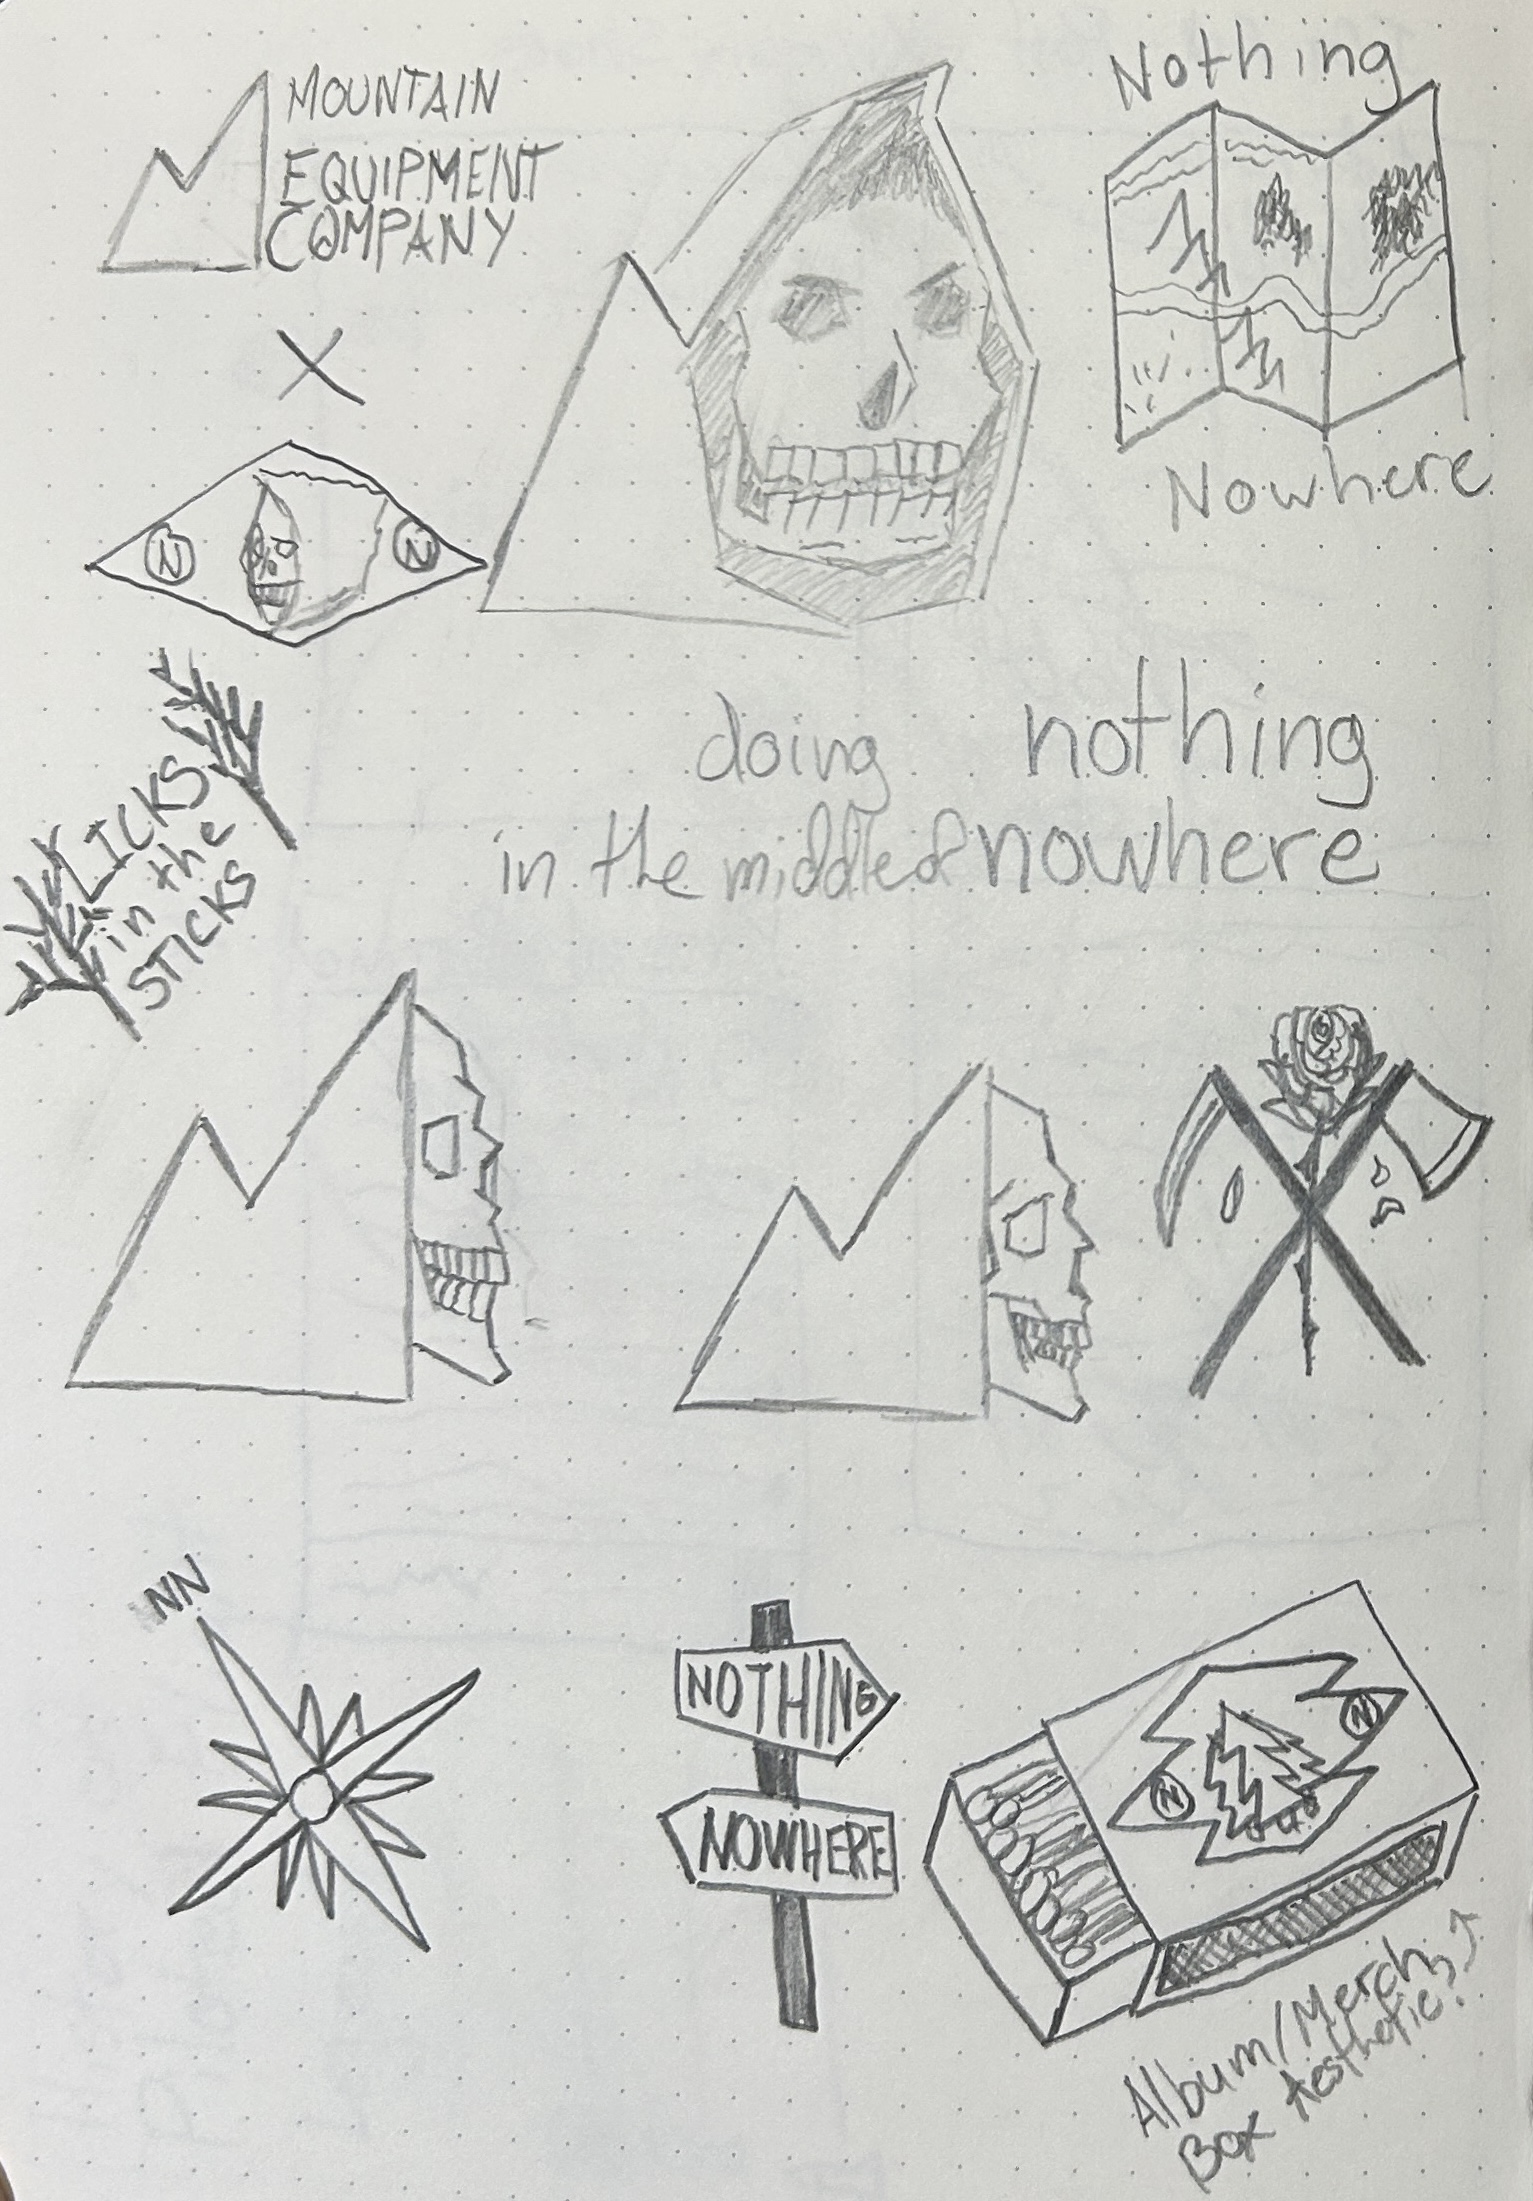 MOUNTAIN
EQUIPMENT
COMPANY
X
N
N
Nothing
Nowhere
LICKS
in the
STICKS
doing nothing
in the middle of nowhere
NN
NOTHING
NOWHERE
N
N
Album/Merch
Box Aesthetic?